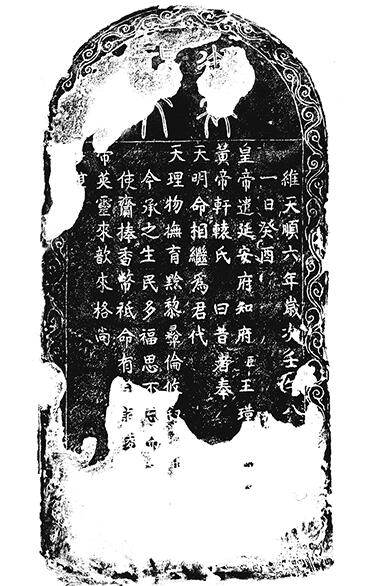 維天順六年歲次壬午八
一日癸酉
皇帝遣延安府知府臣王
黃帝軒轅氏曰昔者奉
天明命相繼爲君代
天理物撫育黔黎彝倫攸敘
今承之生民多福思不忘
使齎捧香幣祗命有
帝英靈來歆來格尚